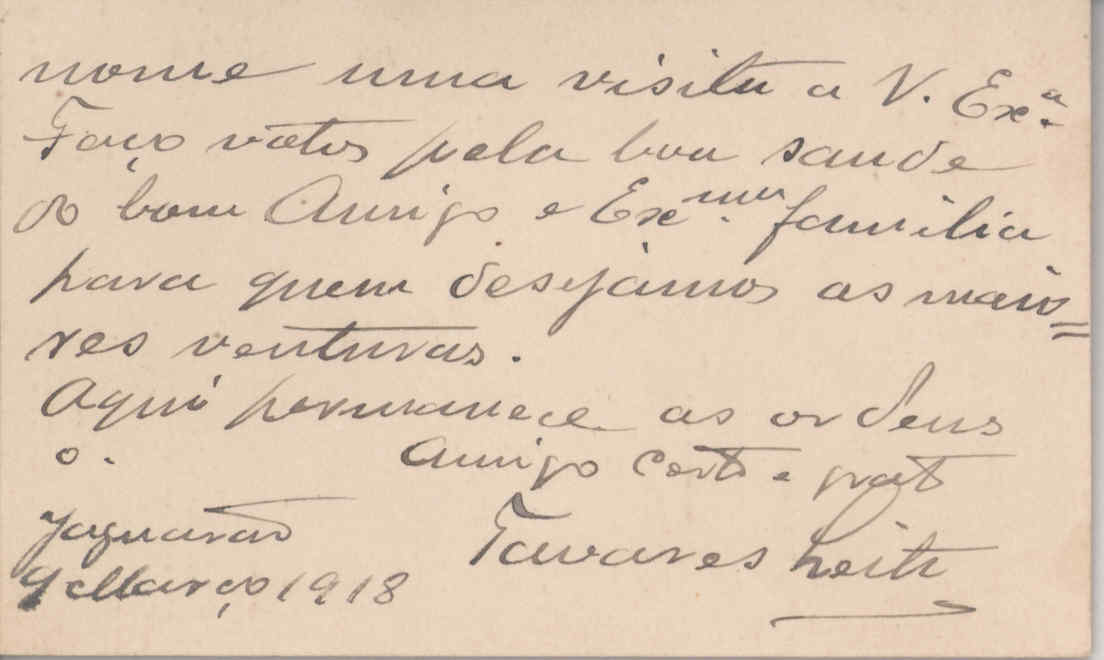 nome uma visita a V. Exª.
Faço votos pela boa saude
do bom Amigo e Ex.ma familia
para quem desejamos as maio=
res venturas.
Aqui permanece as ordens
o. Amigo Cort e grat
Jaguarão Tavares Leite
9 Março 1918